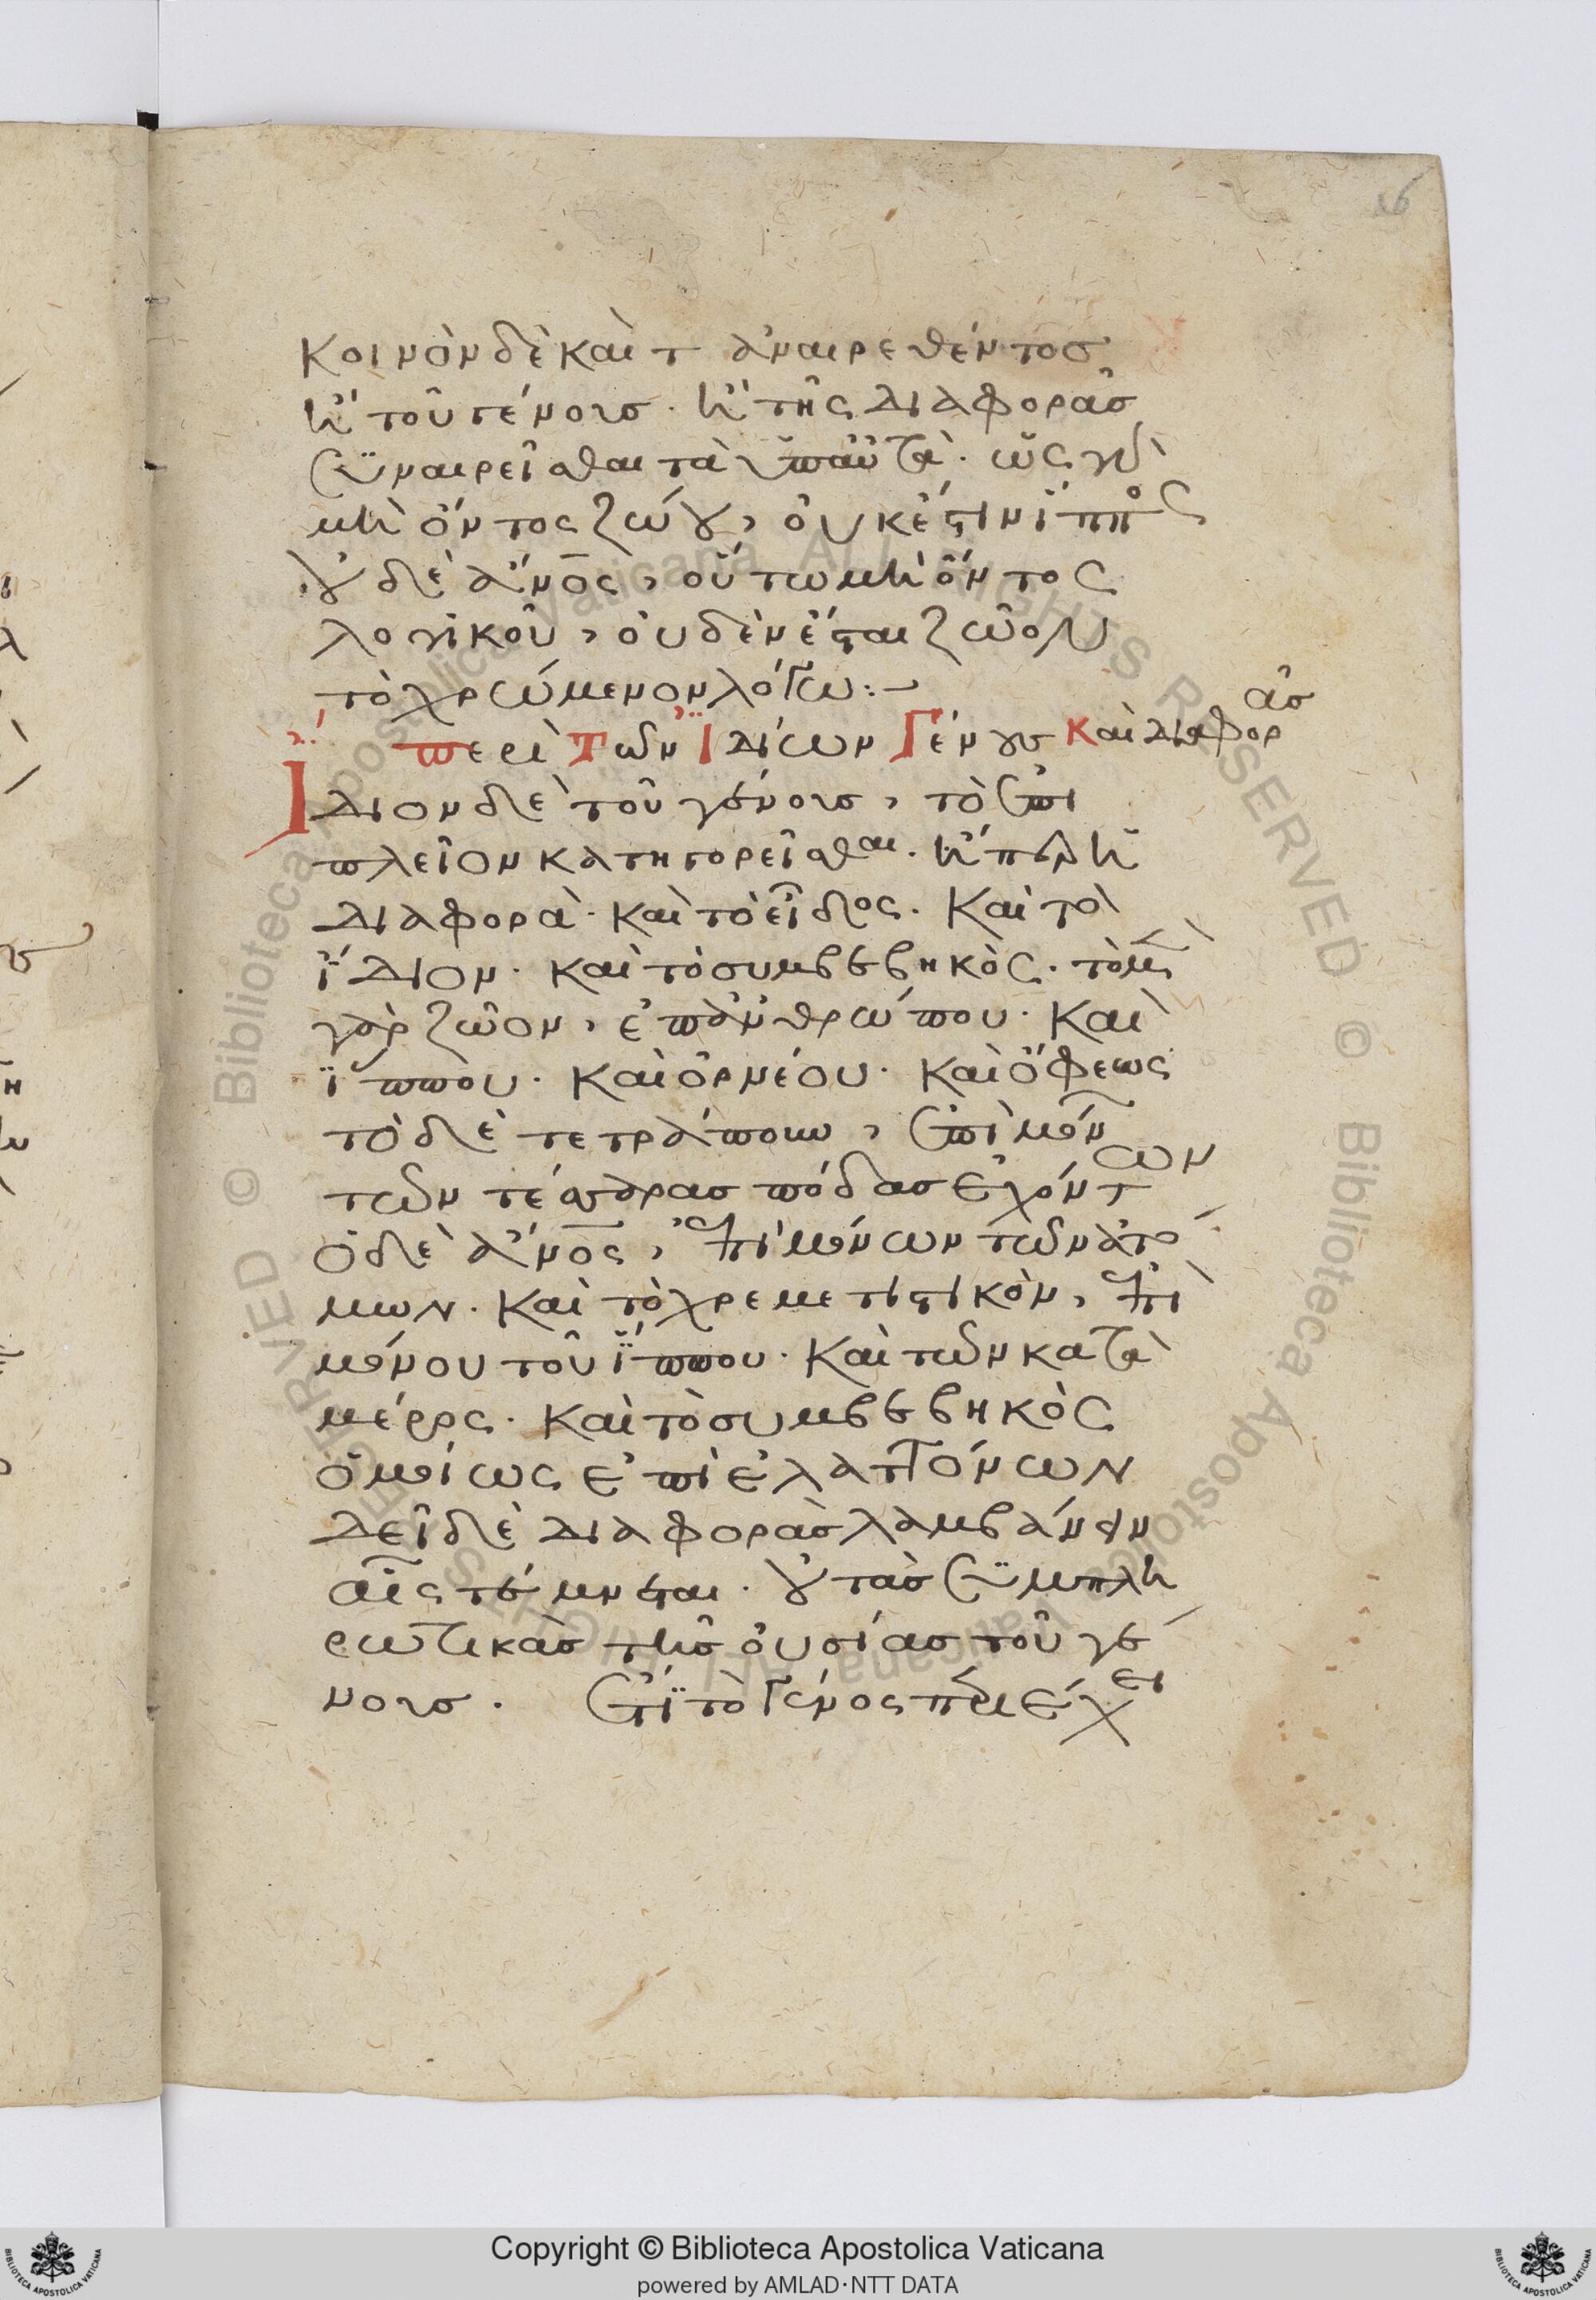 26
κοινὸν δὲ καὶ τ ἀναιρεθέντος
ἢ τοῦ γένους· ἢ τῆς διαφορᾶς
συναιρεῖσθαι τὰ ὑπ' αὐτά· ὡς γὰρ
μὴ ὄντος ζώου, οὐκ ἔστιν ἵππος
οὐδὲ ἄνος, οὕτω μὴ ὄντος
λογικοῦ, οὐδὲν ἔσται ζῶον
τὸ χρώμενον λόγω:–
Περὶ τῶν ἰδίων γένους καὶ διαφορᾶς
Ἴδιον δὲ τοῦ γένους, τὸ ἐπὶ
πλεῖον κατηγορεῖσθαι· ἤπερ ἡ
διαφορά· καὶ τὸ εἶδος· καὶ τὸ
ἴδιον· καὶ τὸ συμβεβηκός· τὸ μὲν
γὰρ ζῶον, ἐπ' ἀνθρώπου· καὶ
ἵππου· καὶ ὀρνέου· καὶ ὄφεως
τὸ δὲ τετράπουν, ἐπὶ μόνων
τῶν τέσσαρας πόδας ἐχόντων
ὁ δὲ ἄνος, ἐπὶ μόνων τῶν ἀτό
μων· καὶ τὸ χρεμετιστικόν, ἐπὶ
μόνου τοῦ ἵππου· καὶ τῶν κατὰ
μέρος· καὶ τὸ συμβεβηκὸς
ὁμοίως ἐπὶ ἐλαττόνων
δεῖ δὲ διαφορὰς λαμβάνειν
αἷς τέμνεται· οὐ τὰς συμπλη
ρωτικὰς τῆς οὐσίας τοῦ γέ
νους. ἔτι τὸ γένος περιέχει
Copyright © Biblioteca Apostolica Vaticana
powered by AMLAD·NTT DATA